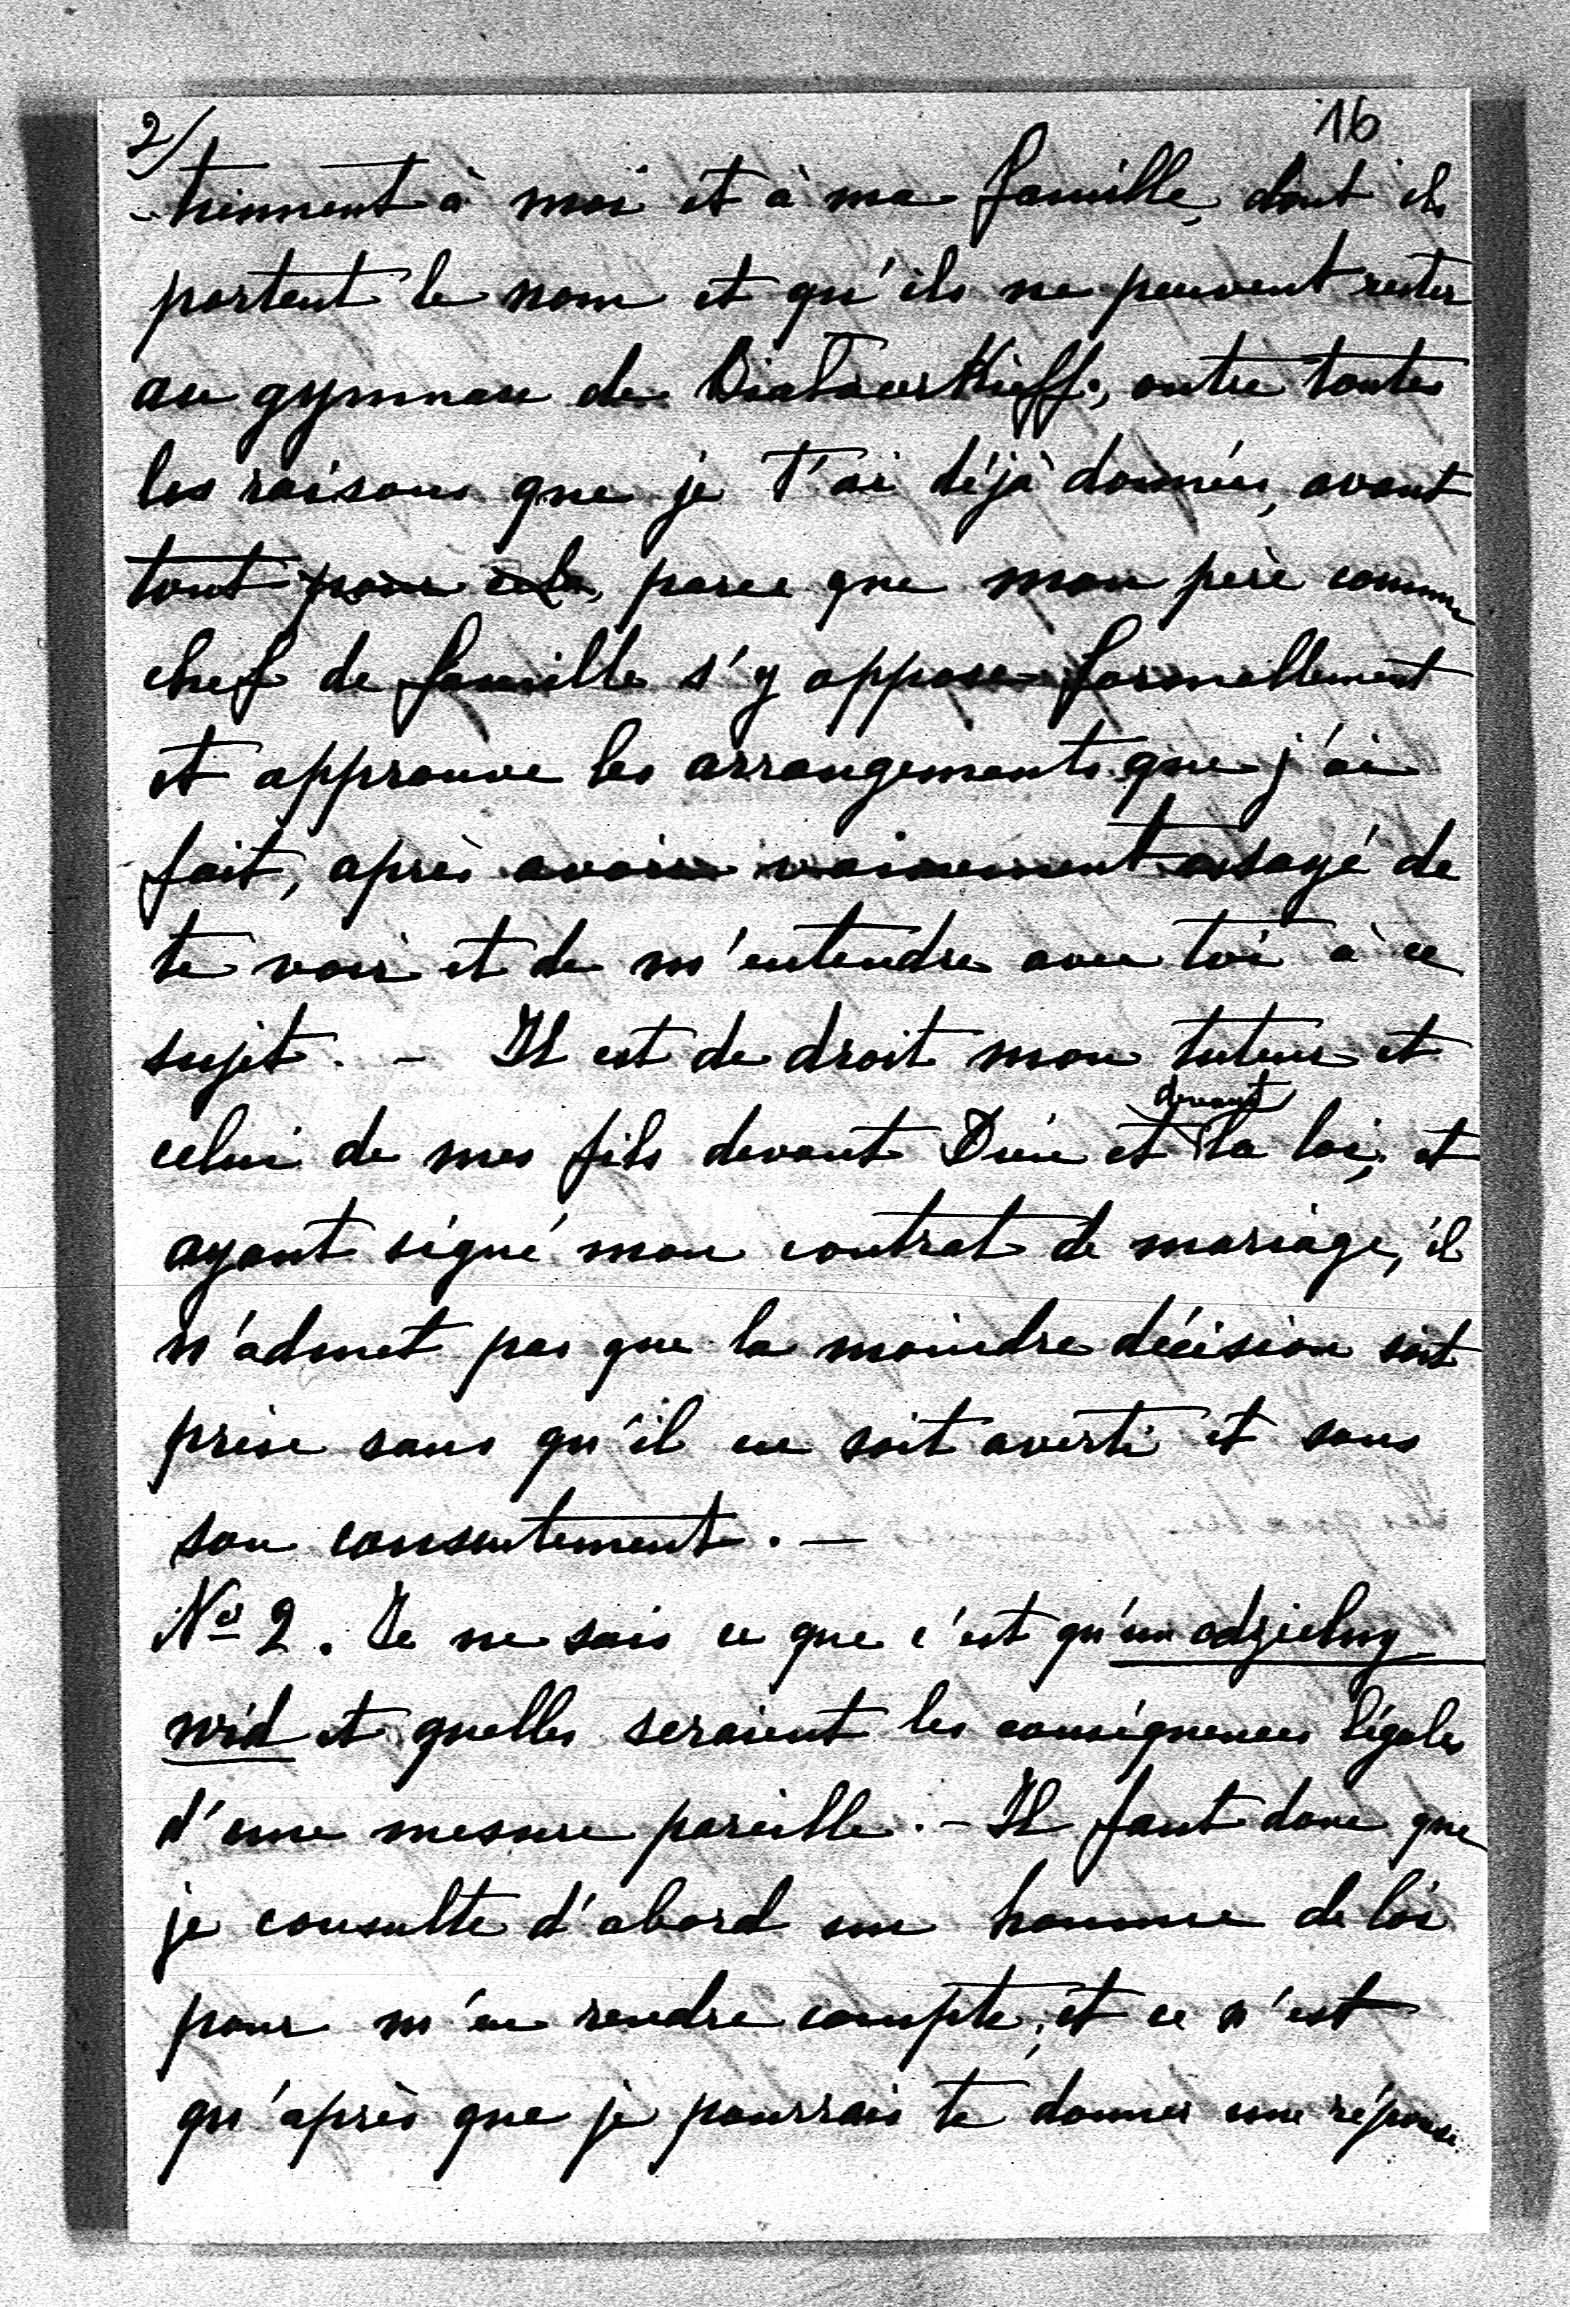 2/
16
-tiennent à moi et à ma famille, dont ils
portent le nom et qu'ils ne peuvent rester
au gymnase de, outre toutes
les raisons que je t'ai déjà données, avant
tout pour cela, parce que mon père comme
chef de famille s'y oppose formellement
et approuve les arrangements que j'ai
fait, après avoir vainement essayé de
te voir et de m'entendre avec toi à ce
sujet. - Il est de droit mon tuteur et
devant
celui de mes fils devant Dieu et la loi, et
ayant signé mon contrat de mariage, il
n'admet pas que la moindre décision soit
prise sans qu'il en soit averti et sans
son consentement. -
No 2. Je ne sais ce que c'est qu'un odzielny
wid et quelles seraient les conséquences légales
d'une mesure pareille. - Il faut donc que
je consulte d'abord un homme de loi
pour m'en rendre compte, et ce n'est
qu'après que je pourrais te donner une réponse